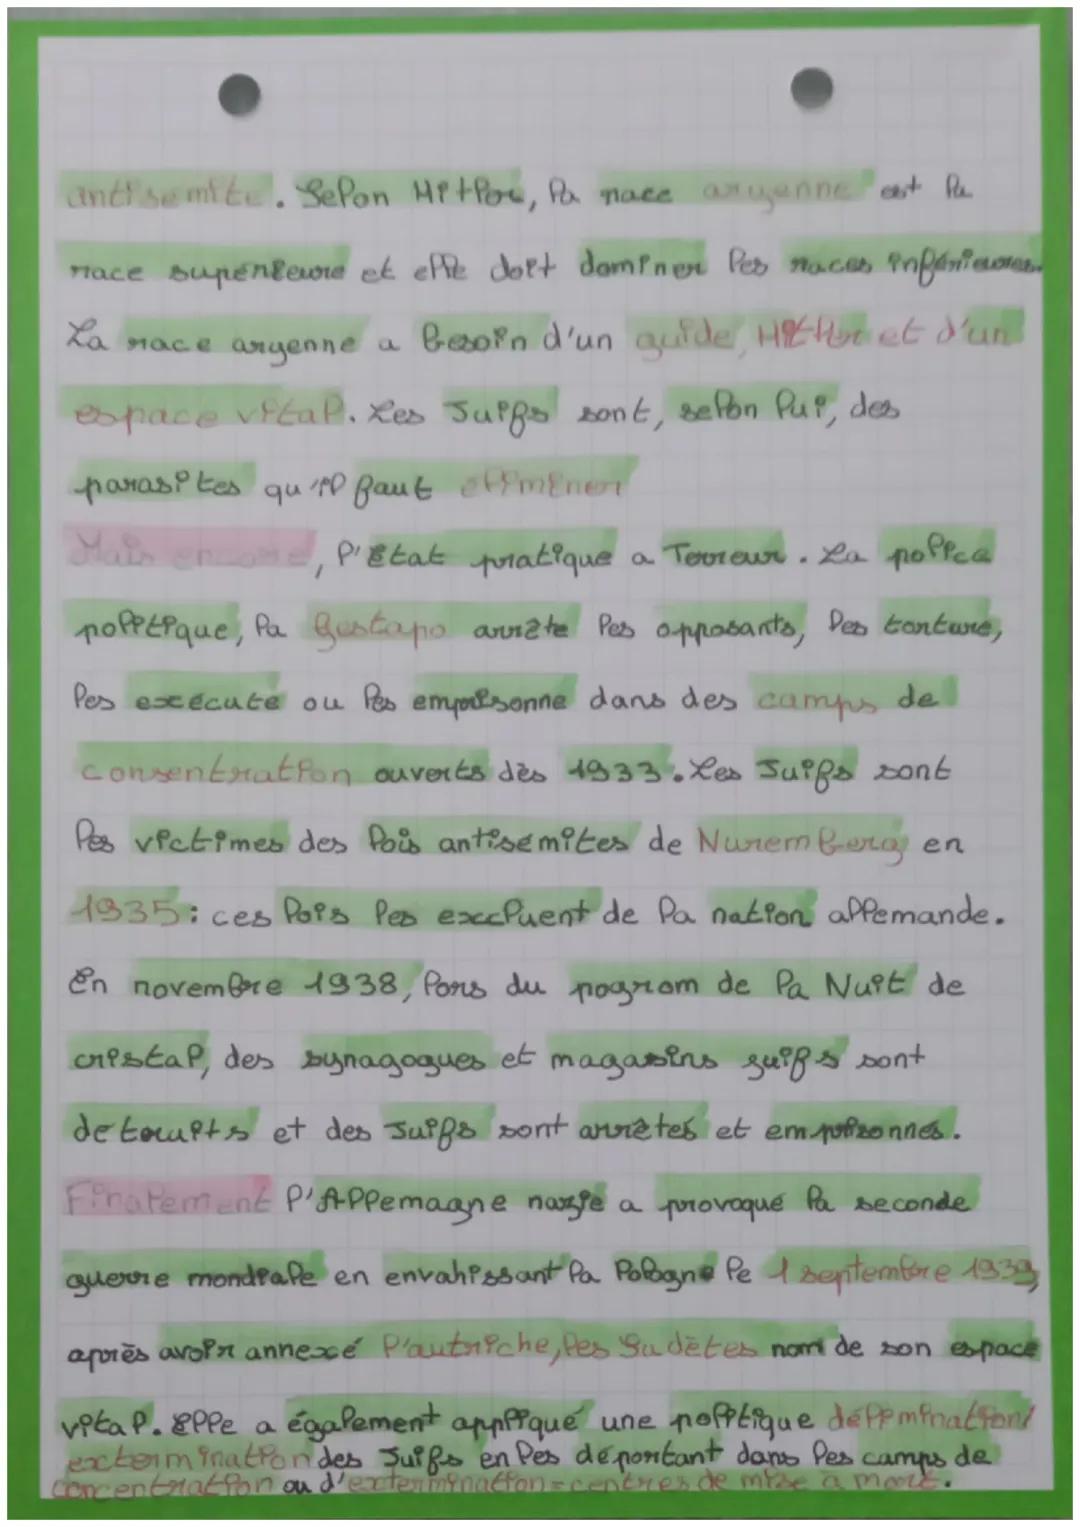 antisemite. Selon Hitler, la race aryenne est la
race supérieure et elle doit dominer les races inférieures.
La race aryenne a besoin d'un guide, Hitler et d'un
espace vital. Les Juifs sont, selon lui, des
parasites qu'il faut eliminer
Mais encore, l'État pratique a Terreur. La police
politique, la Gestapo arrête les opposants, les torture,
les exécute ou les emprisonne dans des camps de
consentration ouverts dès 1933. Les Juifs sont
les victimes des lois antisémites de Nuremberg en
1935 : ces lois les excluent de la nation allemande.
En novembre 1938, lors du pogrom de la Nuit de
cristal, des synagogues et magasins juifs sont
detruits et des Juifs sont arrêtés et emprisonnés.
Finalement l'Allemagne nazie a provoqué la seconde
guerre mondiale en envahissant la Pologne le 1 septembre 1939,
après avoir annexé l'autriche, les Sudètes nom de son espace
vital. Elle a également appliqué une politique d'élimination/
extermination des Juifs en les déportant dans les camps de
concentration ou d'extermination = centres de mise à mort.